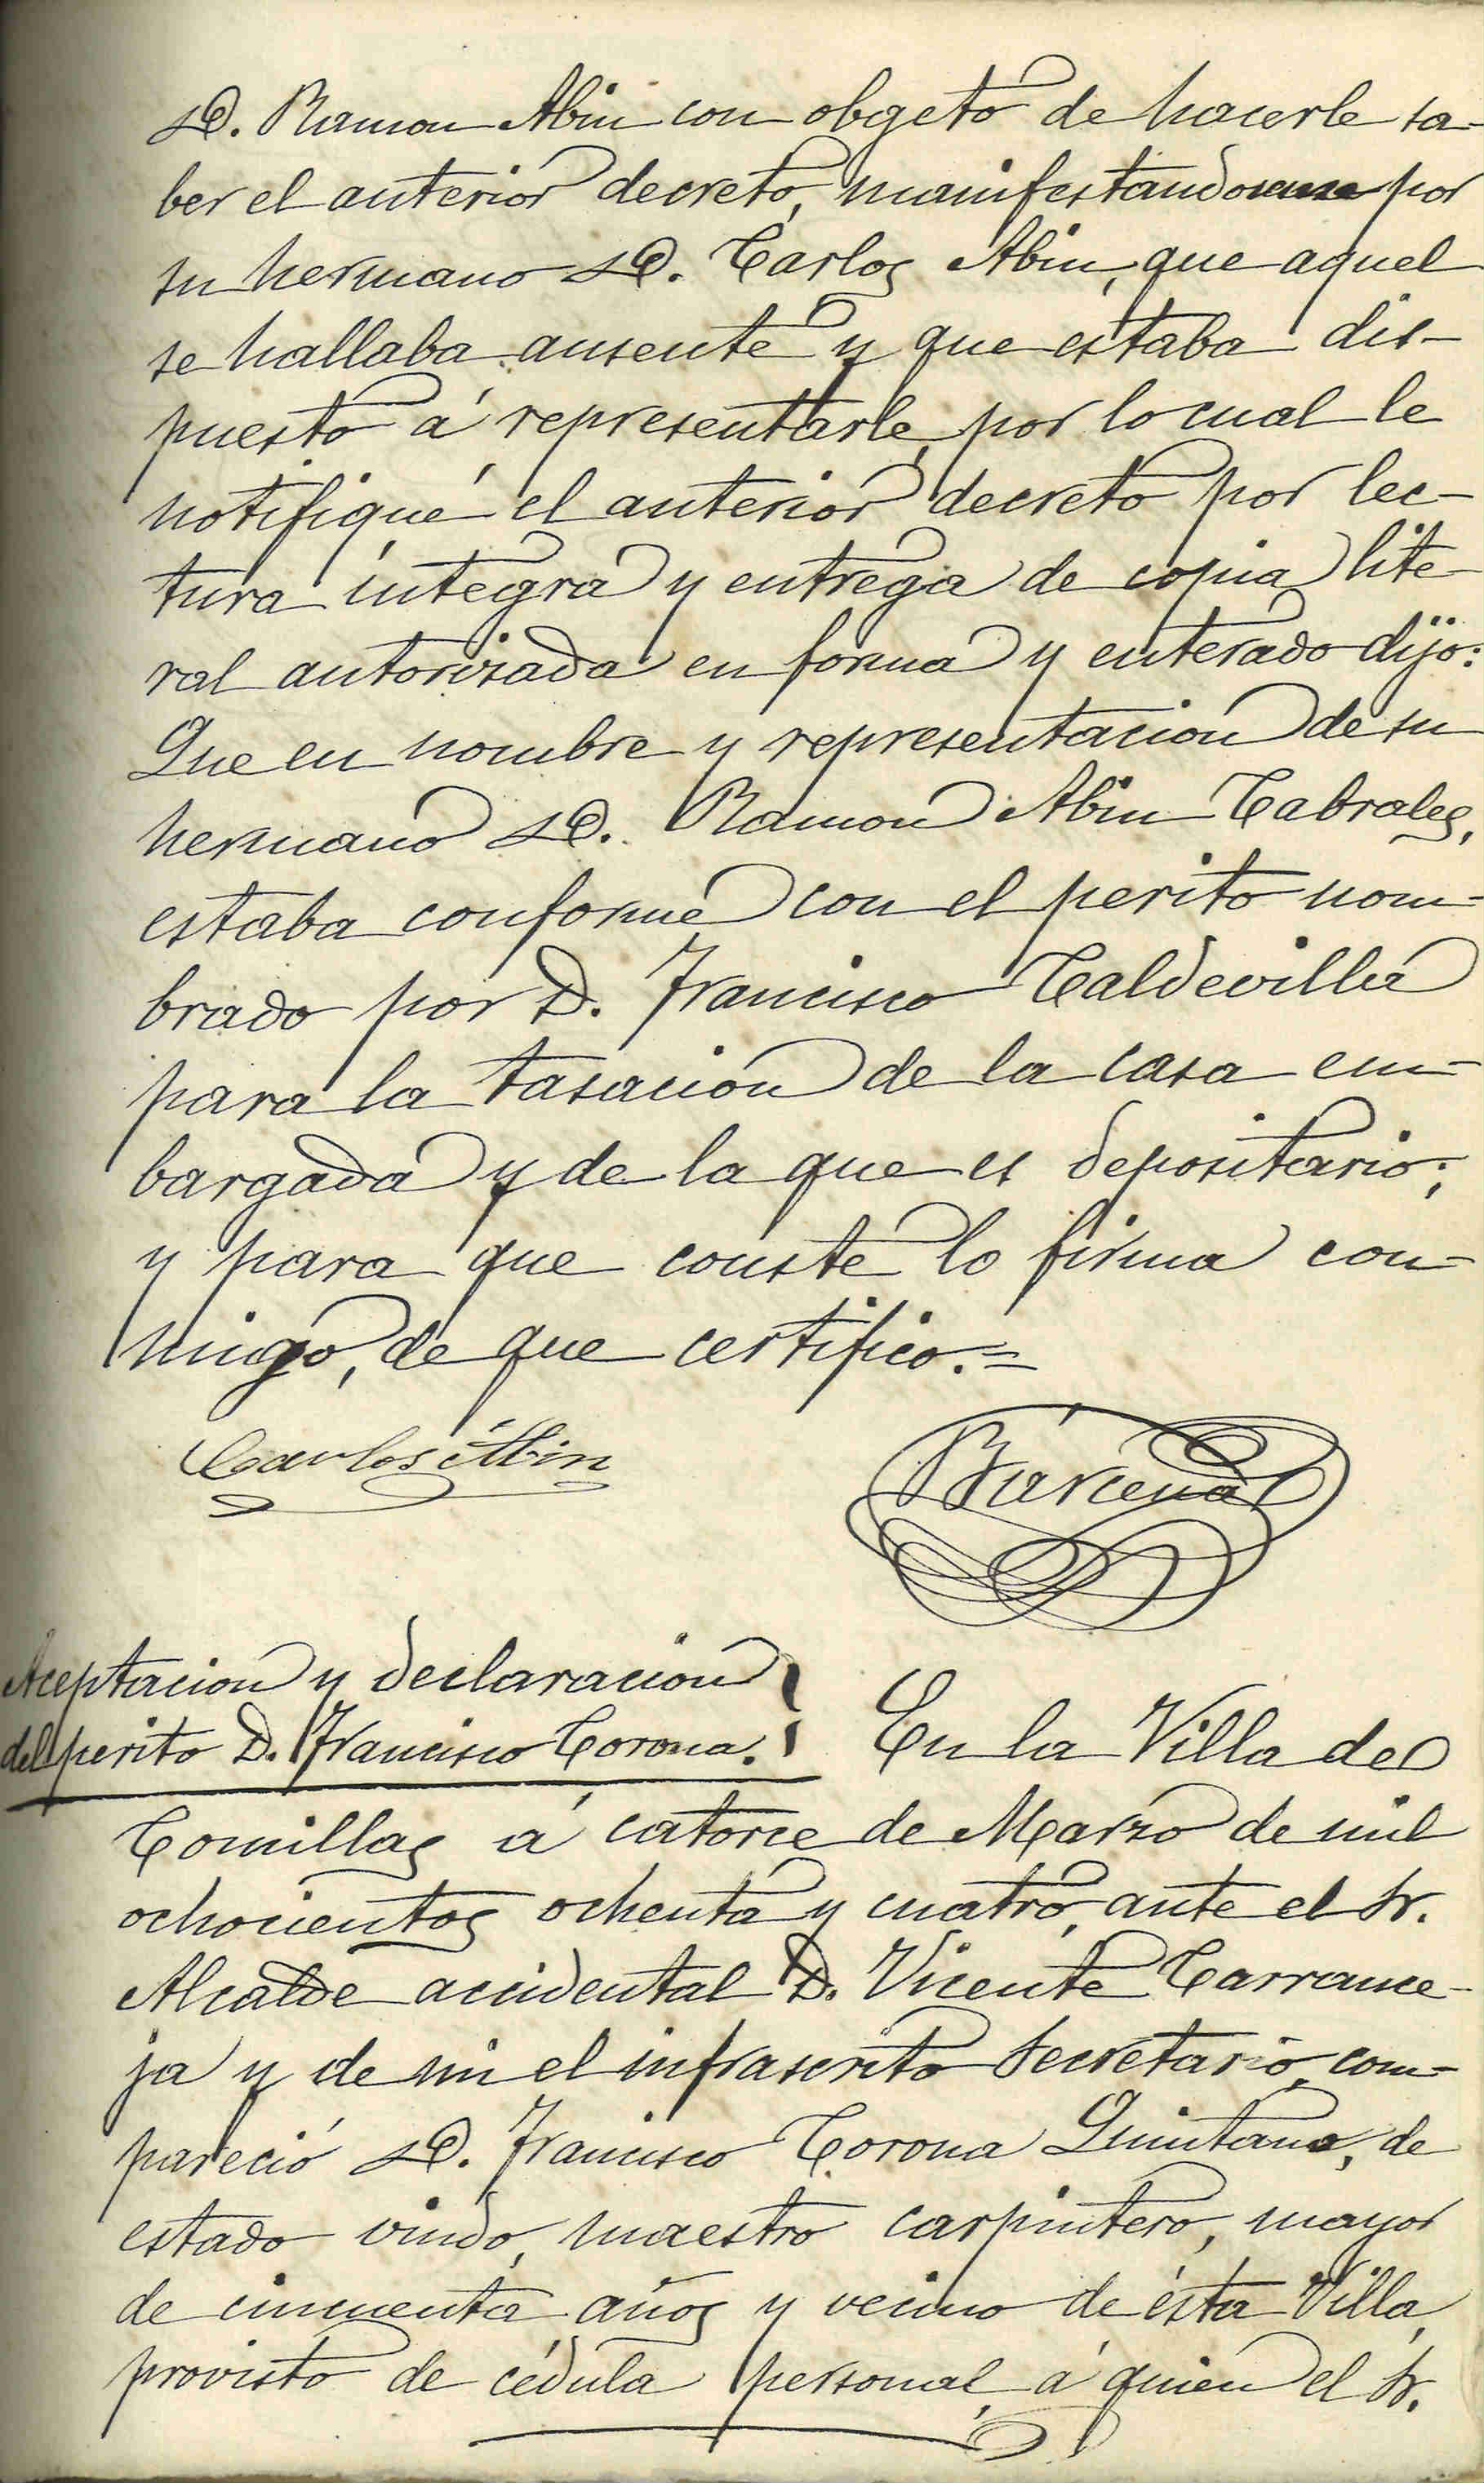 D. Ramon Abin con obgeto de hacerle sa-
ber el anterior decreto, manifestandoseme por
su hermano D. Carlos Abin, que aquel
se hallaba ausente y que estaba dis-
puesto á representarle, por lo cual le
notifiqué el anterior decreto por lec-
tura íntegra y entrega de copia lite-
ral autorizada en forma y enterado dijo:
Que en nombre y representacion de su
hermano D. Ramon Abin Cabrales,
estaba conforme con el perito nom-
brado por D. Francisco Caldevilla
para la tasacion de la casa em-
bargada y de la que es depositario;
y para que conste lo firma con-
migo, de que certifico.=
Carlos Abin
Bárcena
Aceptacion y declaracion
del perito D. Francisco Corona.
En la Villa de
Comillas á catorce de Marzo de mil
ochocientos ochenta y cuatro, ante el Sr.
Alcalde accidental D. Vicente Carrance-
ja y de mi el infrascrito Secretario, com-
pareció D. Francisco Corona Quintana, de
estado viudo, maestro carpintero, mayor
de cincuenta años y vecino de ésta Villa,
provisto de cédula personal, á quien el Sr.